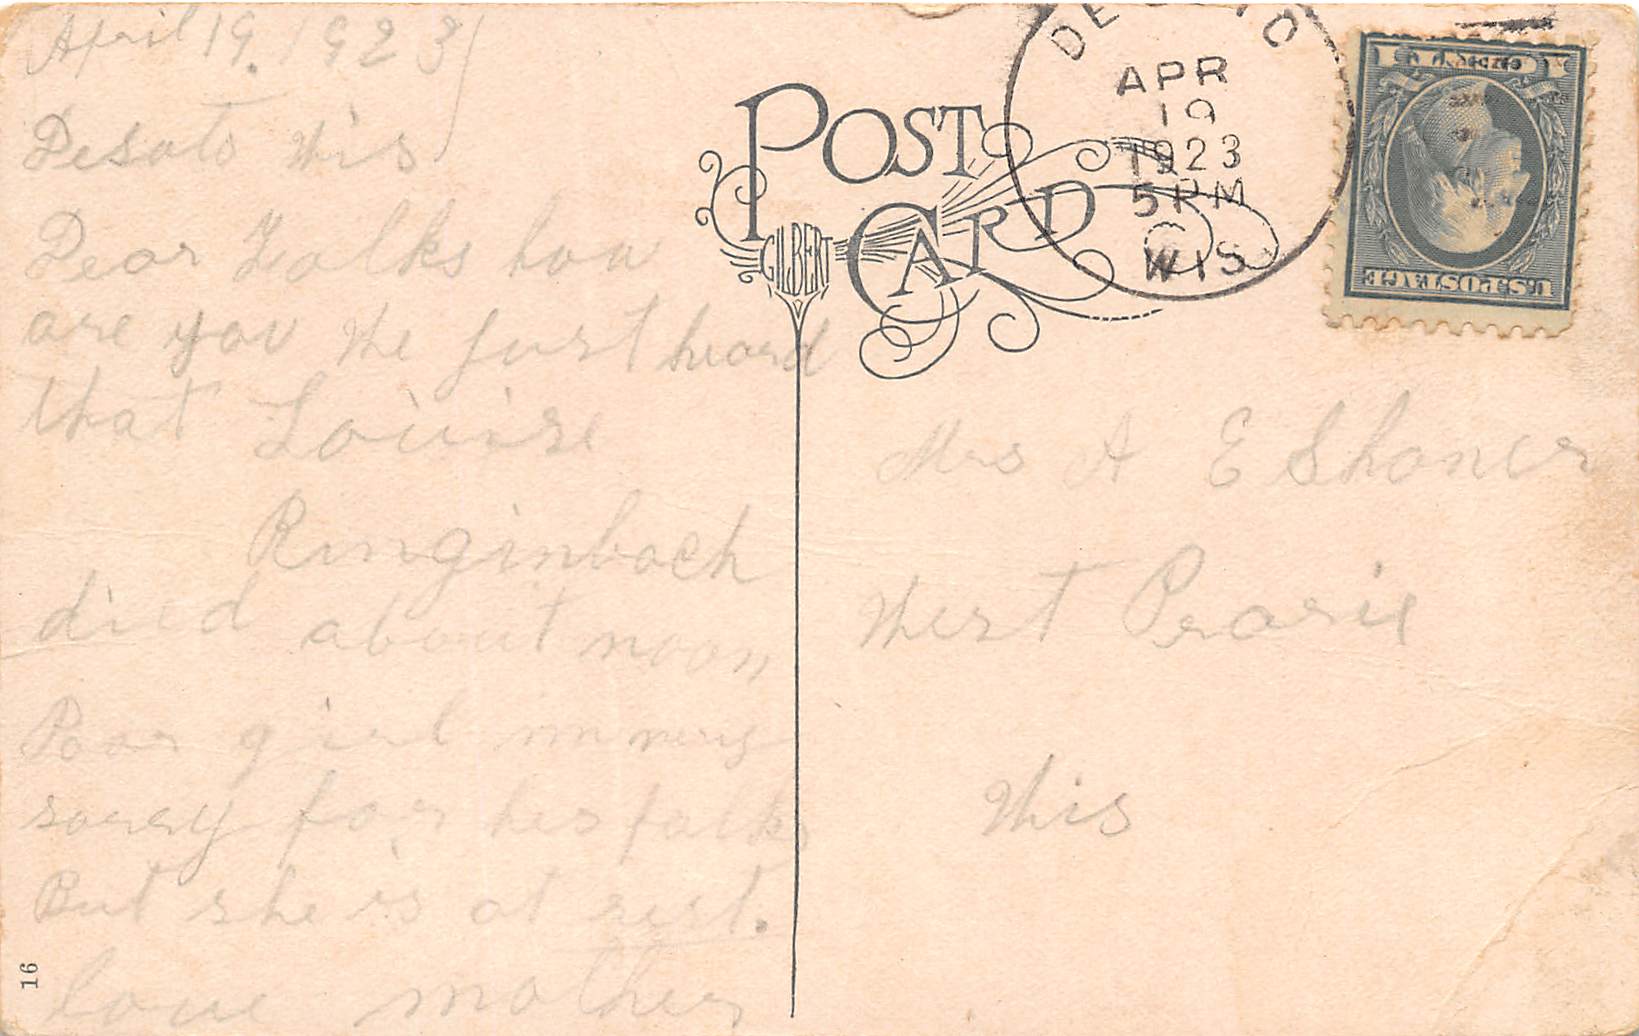 April 19. 1923
Desoto Wis
Dear Folks how
are you We just heard
that Louise
Ringinbach
died about noon
Poor girl im very
sorry for her folks
But she is at rest.
love mother
16
POST
CARD
GILBERT
DE SOTO
APR
19
1923
5 PM
WIS
U.S. POSTAGE
Mrs A E Shoner
West Prarie
Wis